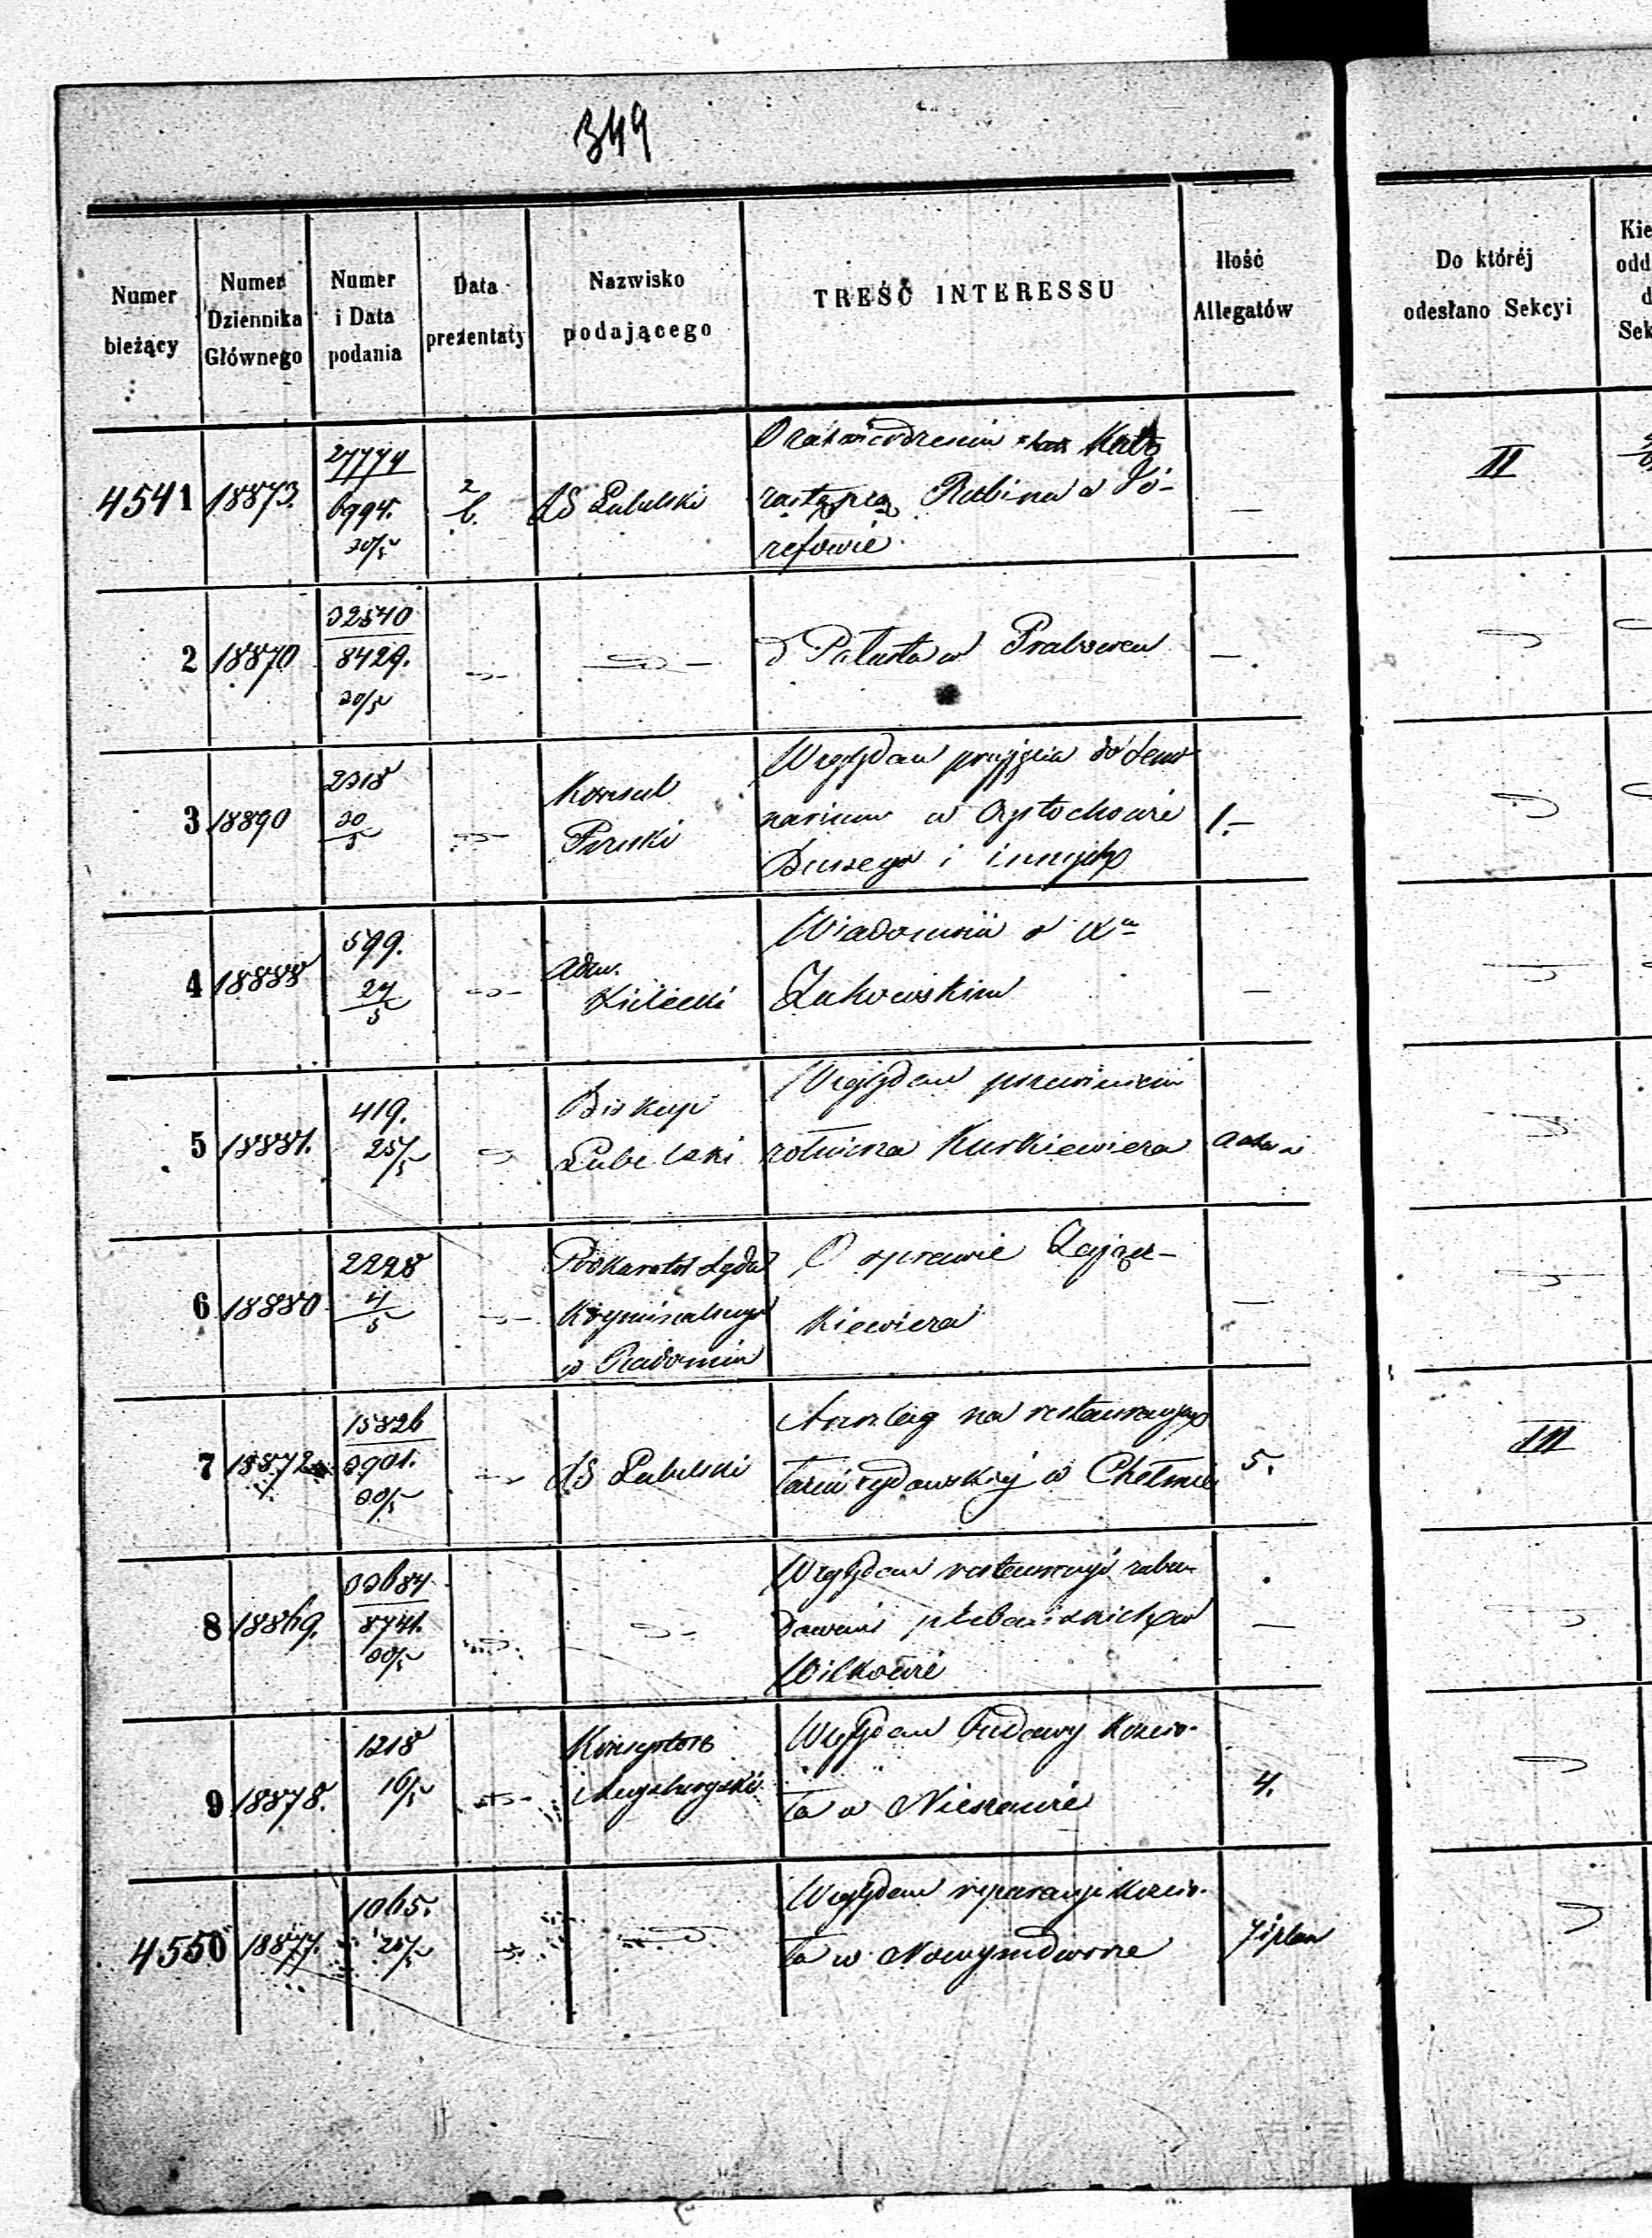 349
Numer bieżący
Numer Dziennika Głównego
Numer i Data podania
Data prezentaty
Nazwisko podającego
TREŚĆ INTERESSU
Ilość Allegatów
Do któréj odesłano Sekcyi
4541 18873. 27774 6994. 30/5 2/6. Lubelski
Rubina w Jó-
zefowie
—
II
2 18870 32540 8429. 30/5
w
—.
3 18890 2318 30/5 Konsul
Pruski
Względem przyjęcia do Semi
narium w
i innych
1.—
4 18888 599. 27/5 Adm.
Kielecki
Wiadomości o
Żukowskim
—
5 18881. 419. 25/5 Biskup
Lubelski
Względem
Kurkiewicza
6 18880 2298 4/5
Kryminalnego
w Radomiu
O sprawie Zającz-
kiewicza
—
7 18872 15826 3901. 30/5 Lubelski
Anszlag na restauracyą
łaźni żydowskiéj w Chełmie
5.
III
8 18869. 33684 8741. 30/5
Względem restauracyi zabu-
dowań plebańskich w
Wilkowie
—
9 18878. 1218 16/5 Konsystorz
Augsburgski
Względem budowy kościo-
ła w Nieszawie
4.
4550 18877. 1065. 25/5
Względem reparacyi kościo-
ła w Nowymdworze
7 i plan